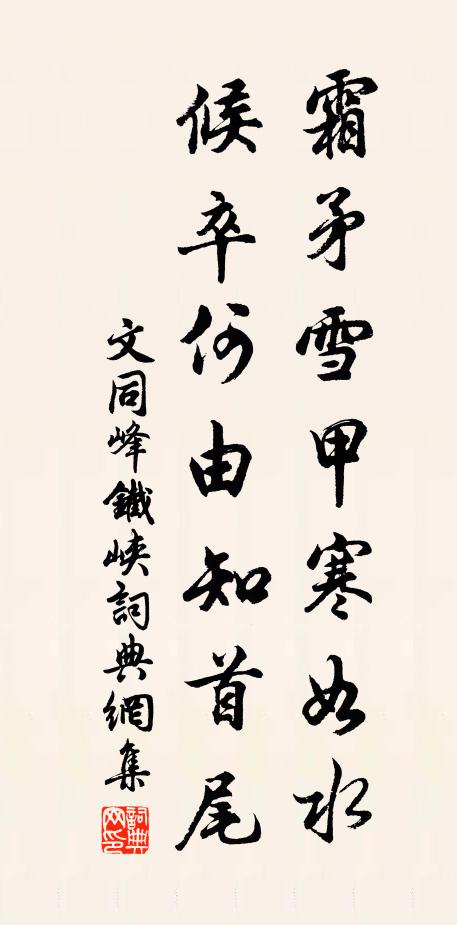 霜矛雪甲寒如水
候卒何由知首尾
文同峰鐵峽詞典網集
詞典網印